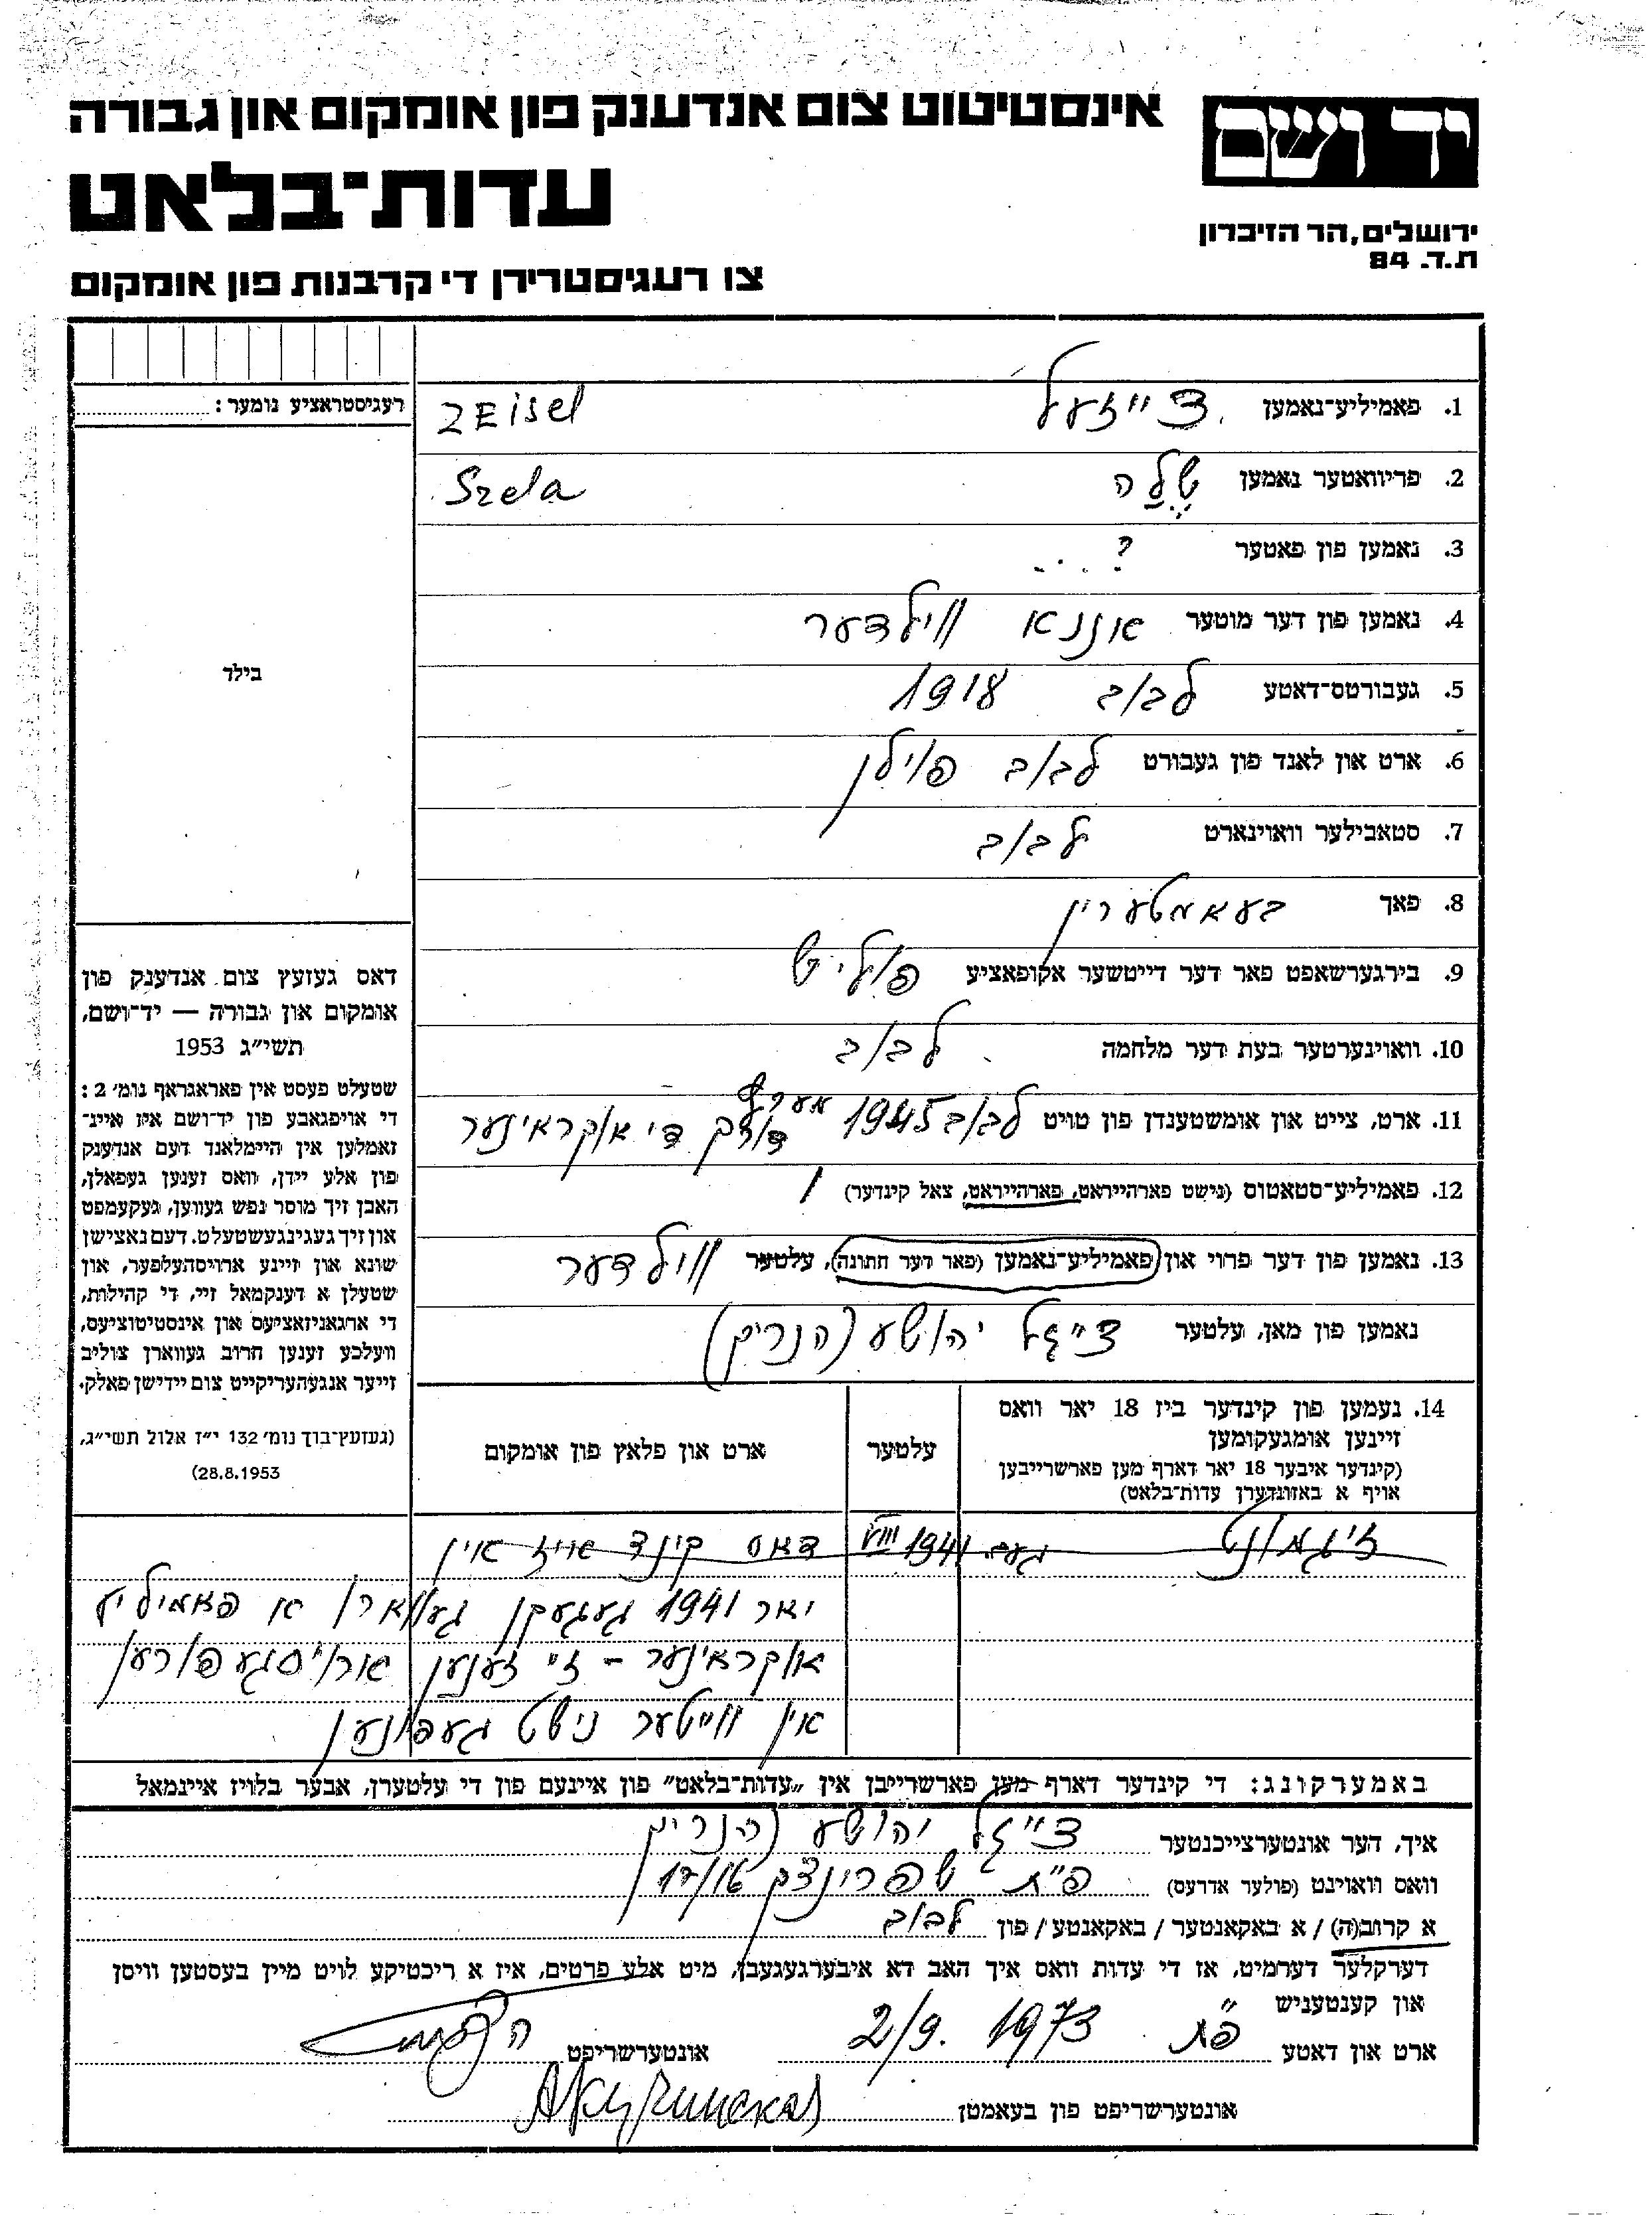 יד ושם
אינסטיטוט צום אנדענק פון אומקום און גבורה
עדות־בלאט
ירושלים, הר הזיכרון
ת.ד. 84
צו רעגיסטרירן די קרבנות פון אומקום
רעגיסטראציע נומער:
בילד
1. פאמיליע־נאמען צייזעל ZEisel
2. פריוואטער נאמען שלה Szela
3. נאמען פון פאטער ?
4. נאמען פון דער מוטער אננא ווילדער
5. געבורטס־דאטע לבוב 1918
6. ארט און לאנד פון געבורט לבוב פוילן
7. סטאבילער וואוינארט לבוב
8. פאך בעאמטערין
9. בירגערשאפט פאר דער דייטשער אקופאציע פוליש
10. וואוינערטער בעת דער מלחמה לבוב
11. ארט, צייט און אומשטענדן פון טויט לבוב 1945 דורך די אוקראינער
12. פאמיליע־סטאטוס (נישט פארהייראט, פארהייראט, צאל קינדער) 1
13. נאמען פון דער פרוי און פאמיליע־נאמען (פאר דער חתונה), עלטער ווילדער
נאמען פון מאן, עלטער צייזל יהושע (הנריק)
14. נעמען פון קינדער ביז 18 יאר וואס
זיינען אומגעקומען
(קינדער איבער 18 יאר דארף מען פארשרייבען
אויף א באזונדערן עדות־בלאט)
עלטער
ארט און פלאץ פון אומקום
זיגמונט געב. 1941 VIII דאס קינד איז אין
יאר 1941 געגעבן געווארן א פאמיליע
אוקראינער - זיי זענען ארויסגעפורען
אין ווייטער נישט געפונען
דאס געזעץ צום אנדענק פון
אומקום און גבורה — יד־ושם,
תשי״ג 1953
שטעלט פעסט אין פאראגראף נומ׳ 2:
די אויפגאבע פון יד־ושם איז איינ־
זאמלען אין היימלאנד דעם אנדענק
פון אלע יידן, וואס זענען געפאלן,
האבן זיך מוסר נפש געווען, געקעמפט
און זיך געגינגעשטעלט. דעם נאצישן
שונא און זיינע ארויסהעלפער, און
שטעלן א דענקמאל זיי, די קהילות,
די ארגאניזאציעס און אינסטיטוציעס,
וועלכע זענען חרוב געווארן צוליב
זייער אנגעהעריקייט צום יידישן פאלק.
(געזעץ־בוך נומ׳ 132 י״ז אלול תשי״ג,
28.8.1953)
באמערקונג: די קינדער דארף מען פארשרייבן אין „עדות־בלאט" פון איינעם פון די עלטערן, אבער בלויז איינמאל
איך, דער אונטערצייכנטער צייזל יהושע (הנריק
וואס וואוינט (פולער אדרעס) פ״ת שפרינצק
א קרוב(ה) / א באקאנטער / באקאנטע / פון לבוב
דערקלער דערמיט, אז די עדות וואס איך האב דא איבערגעגעבן, מיט אלע פרטים, איז א ריכטיקע לויט מיין בעסטען וויסן
און קענטעניש
ארט און דאטע פ״ת 2/9. 1973 אונטערשריפט
אונטערשריפט פון בעאמטן